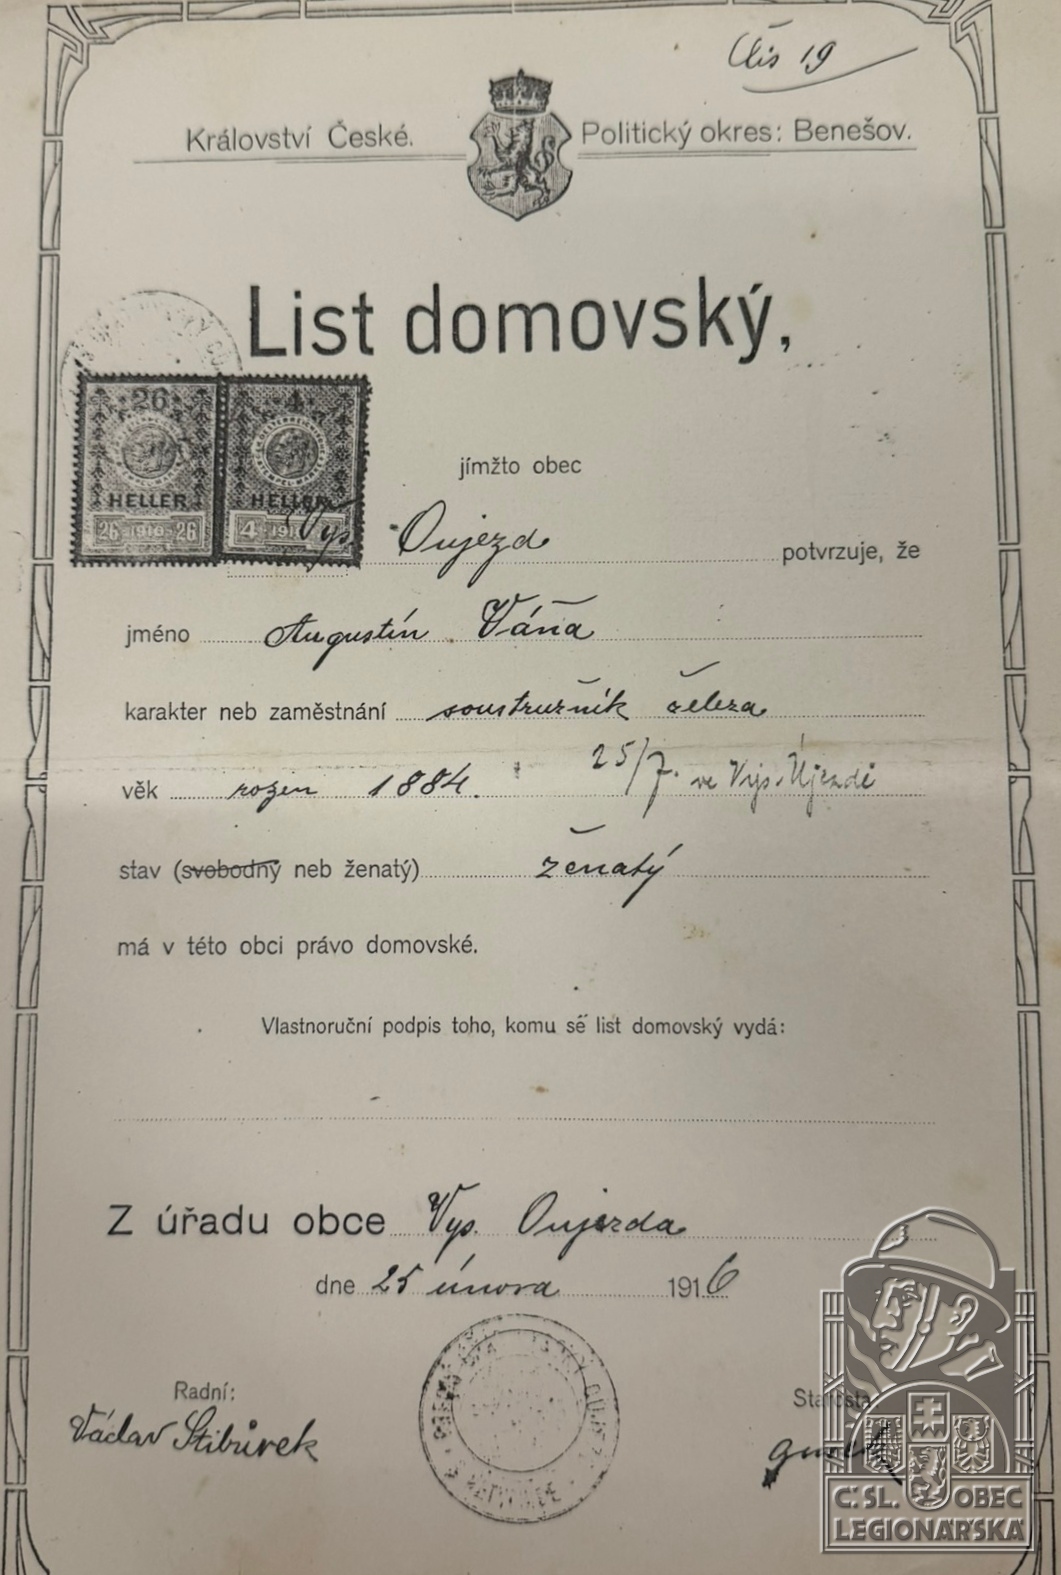 Čís 19
Království České. Politický okres: Benešov.
List domovský,
26 4
HELLER HELLER
26 1910 26 4 191
jímžto obec
Vys. Oujezd potvrzuje, že
jméno Augustín Váňa
karakter neb zaměstnání soustružník železa
věk rozen 1884. 25/7. ve Vys. Újezdě
stav (svobodný neb ženatý) ženatý
má v této obci právo domovské.
Vlastnoruční podpis toho, komu se list domovský vydá:
Z úřadu obce Vys. Oujezda
dne 25 února 1916
Radní: Starosta
Václav Stibůrek
Č.SL. OBEC
LEGIONÁŘSKÁ